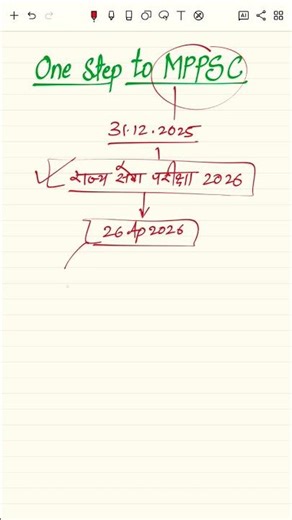 One Step to MPPSC
31.12.2025
राज्य सेवा परीक्षा 2026
26 Ap 2026